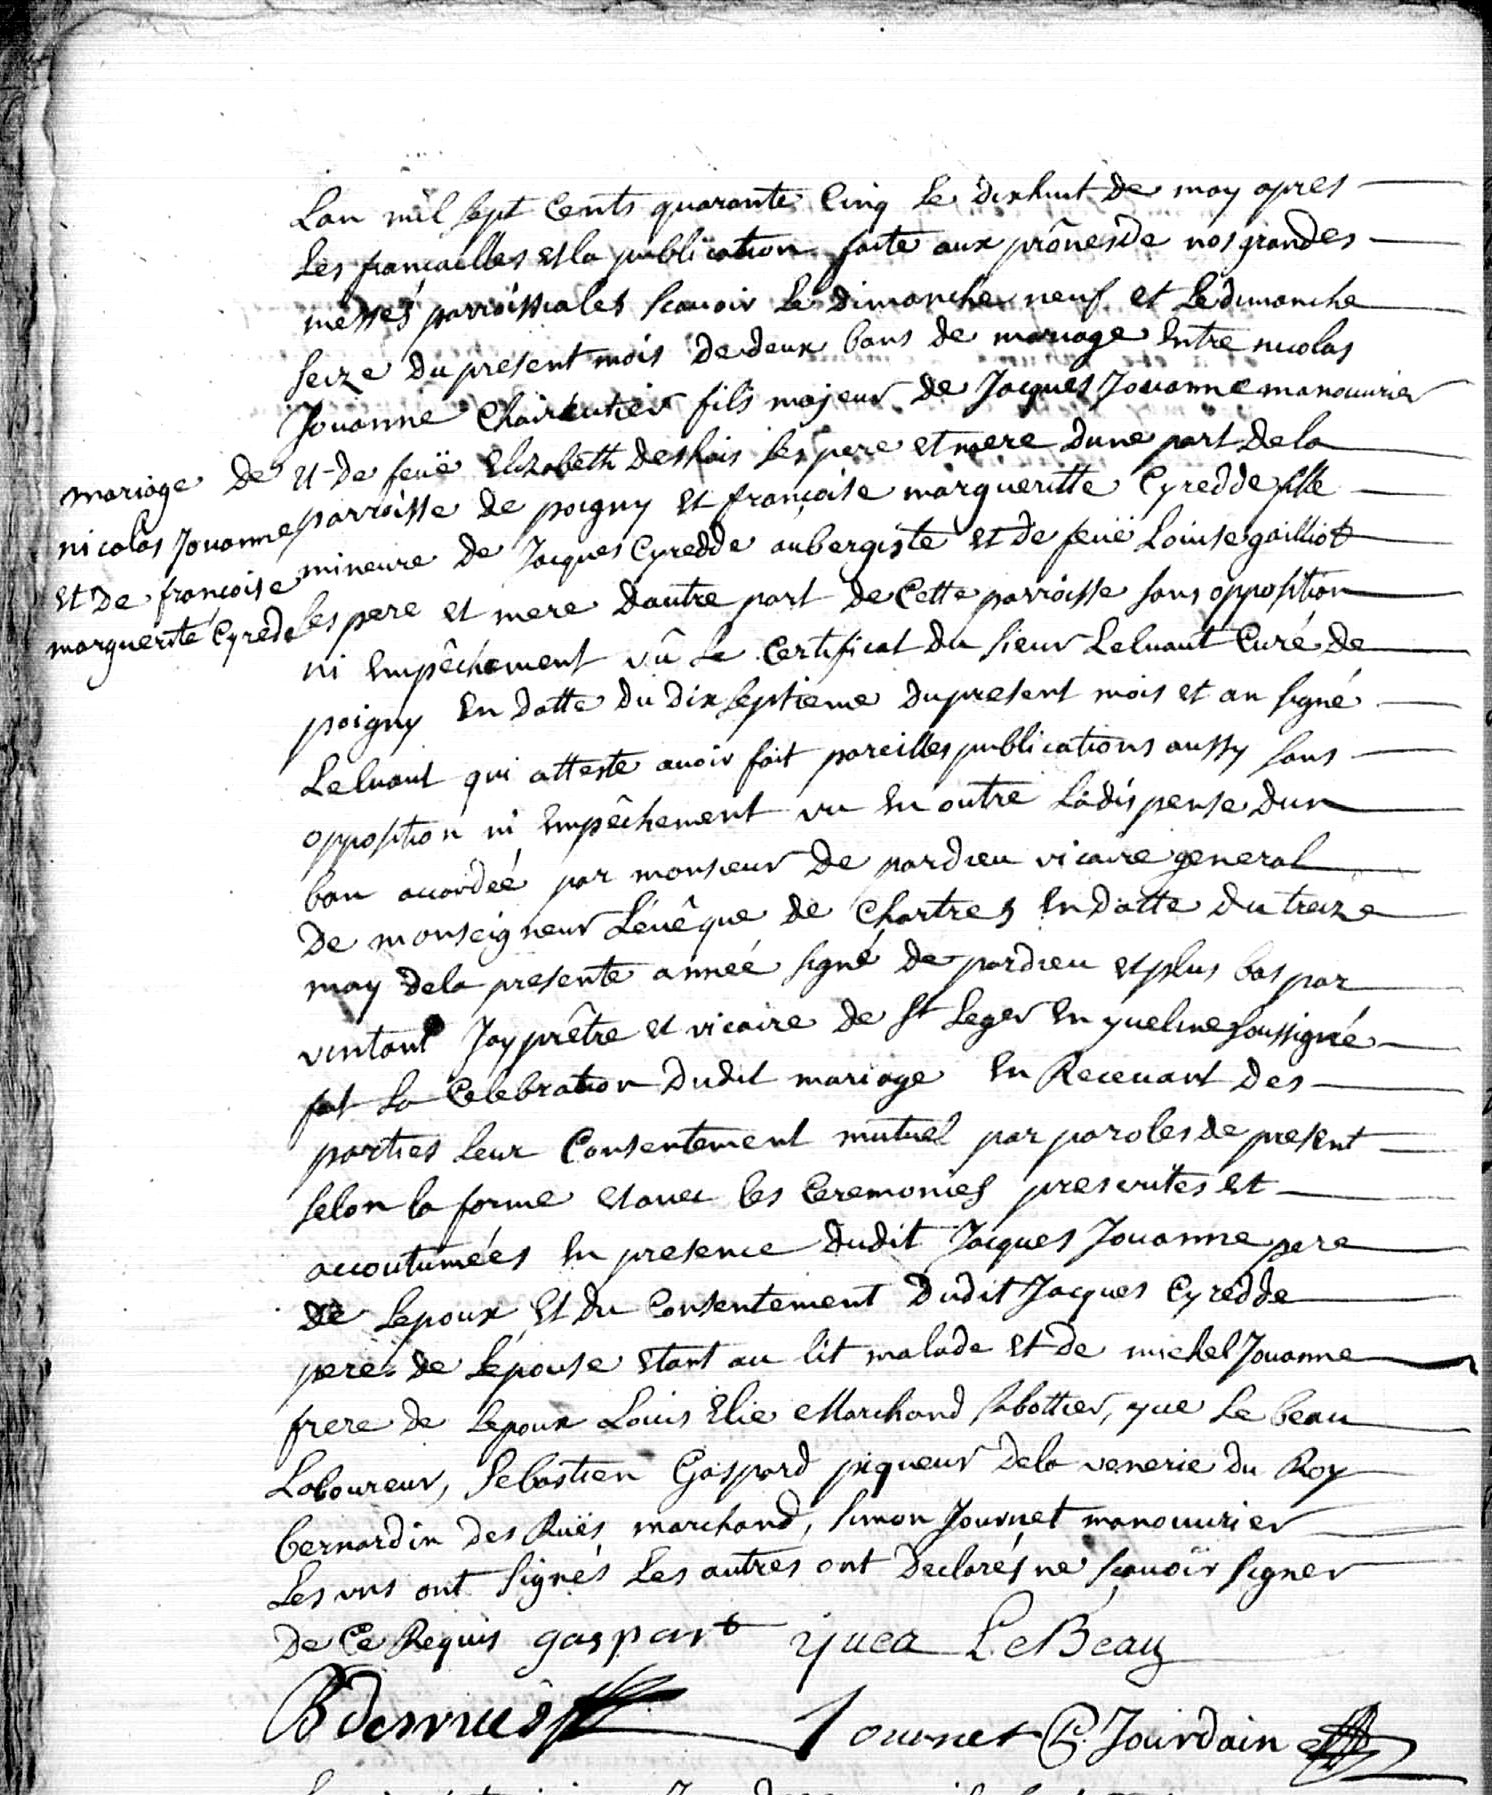 Lan mil sept cents quarante cinq le dixhuit de may apres
les fiancailles et la publication faite aux prônes de nos grandes
messes parroissiales scavoir le dimanche neuf et le dimanche
seize du present mois de deux bans de mariage entre nicolas
Jouanne Chaircutier fils majeur de Jacques Jouanne manouvrier
et de feuë Elizabeth deshais ses pere et mere dune part de la
parroisse de poigny et françoise margueritte Cyredde fille
mineure de Jacques Cyredde aubergiste et de feuë Louise gailliot
ses pere et mere dautre part de Cette parroisse sans opposition
ni Empêchement vû le Certificat du sieur Leluant Curé de
poigny En datte du dix septieme du present mois et an signé
Leluant qui atteste avoir fait pareilles publications aussy sans
opposition ni Empêchement vu En outre la dispense dun
ban accordéé par monsieur De pardieu vicaire general
De monseigneur Lévêque de Chartres En datte du treize
may dela presente annéé signé de pardieu et plus bas par
Jay prêtre et vicaire de St Leger En yveline soussigné
fait la Celebration dudit mariage En Recevant des
parties leur Consentement mutuel par paroles de present
selon la forme et avec les Ceremonies prescrites et
accoutuméés En presence dudit Jacques Jouanne pere
de Lepoux Et du Consentement dudit Jacques Cyredde
pere de Lepouse Etant au lit malade et de michel Jouanne
frere de Lepoux Louis Elie Marchand sabottier, yve le beau
Laboureur, Sebastien Gaspard piqueur dela venerie du Roy
bernardin des Ruës marchand, simon Journet manouvrier
Les uns ont signés Les autres ont declarés ne scavoir signer
De Ce Requis gaspart yuea Le Beau
B desrues Journet C. Jourdain
mariage de
nicolas Jouanne
et de françoise
marguerite Cyrede